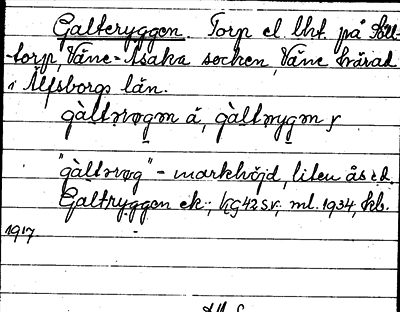 Galteryggen. Torp el. lht. på Koll-
-torp, Väne-Åsaka socken, Väne härad
i Älfsborgs län.
gàltərøgən å, gàltərygən y
"gàltərøg" - markhöjd, liten ås s.d.
Galtryggen ek., kg 42 sv; ml. 1934, kb.
1917